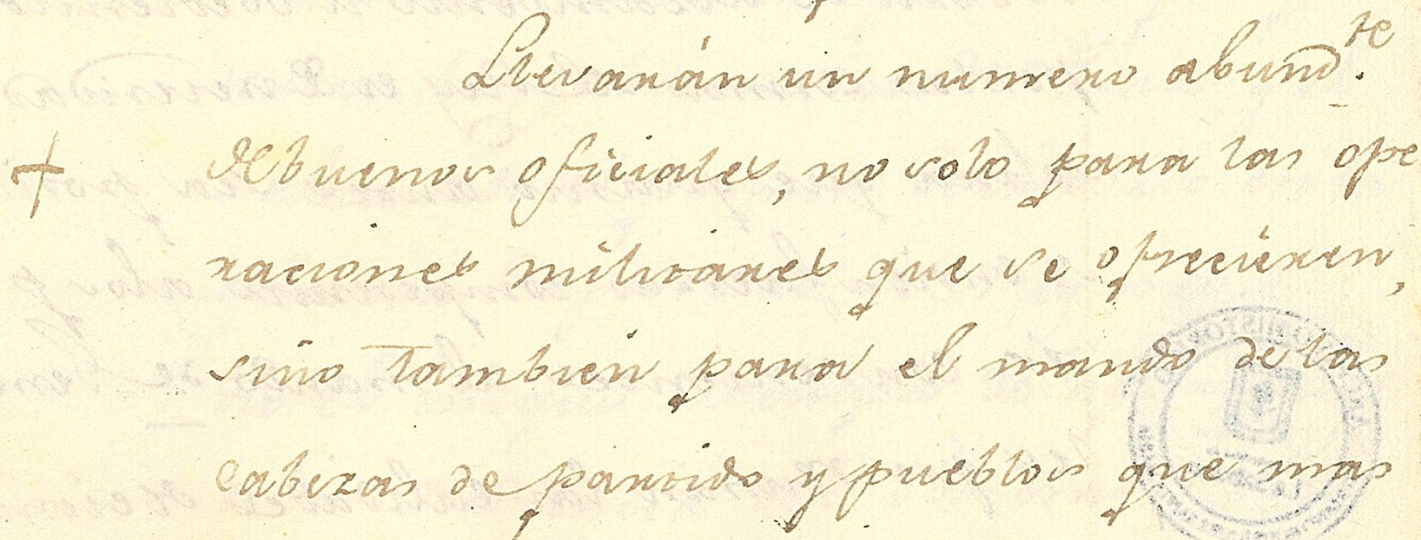 Llevarán un numero abund.te
+ de buenos oficiales, no solo para las ope
raciones militares que se ofrecieren,
sino tambien para el mando de las
cabezas de partido y pueblos que mas